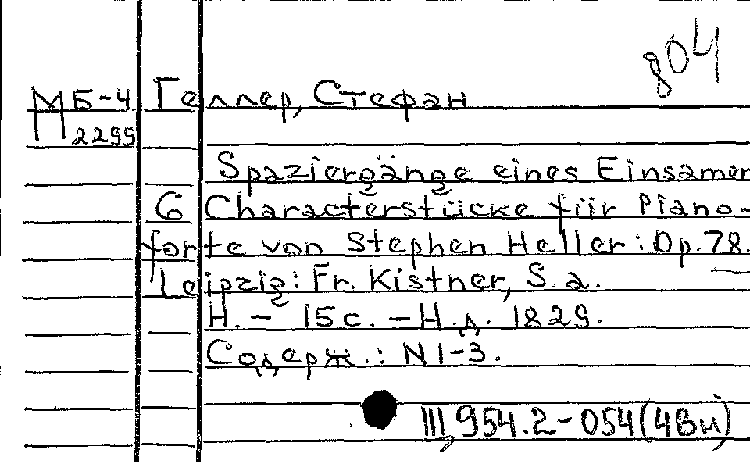 804
МБ-4 Геллер, Стефан
2299
Spaziergänge eines Einsamen
6 Characterstücke für Piano-
forte von Stephen Heller: Op. 78.
Leipzig: Fr. Kistner, S. a.
Н. – 15 с. – Н. д. 1829.
Содерж.: N 1-3.
III, 954.2-054(4Ви)